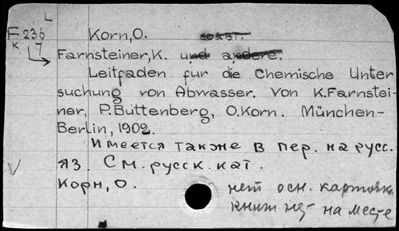 L
F 236 Korn, O.
K 7
Farnsteiner, K. und andere.
Leitfaden für die Chemische Unter
suchung von Abwasser. Von K. Farnstei-
ner, P. Buttenberg, O. Korn. München-
Berlin, 1902.
Имеется также в пер. на русс.
яз. См. русск. кат.
Корн, О.
V
нет осн. карточки
книги нет на месте